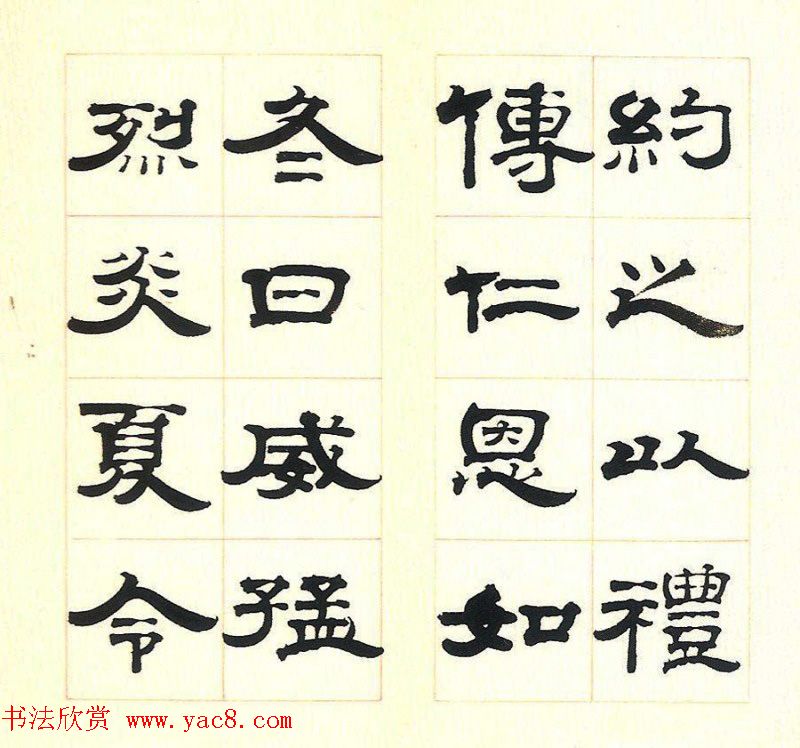 約之以禮
傳仁恩如
冬日威猛
烈炎夏令
书法欣赏 www.yac8.com